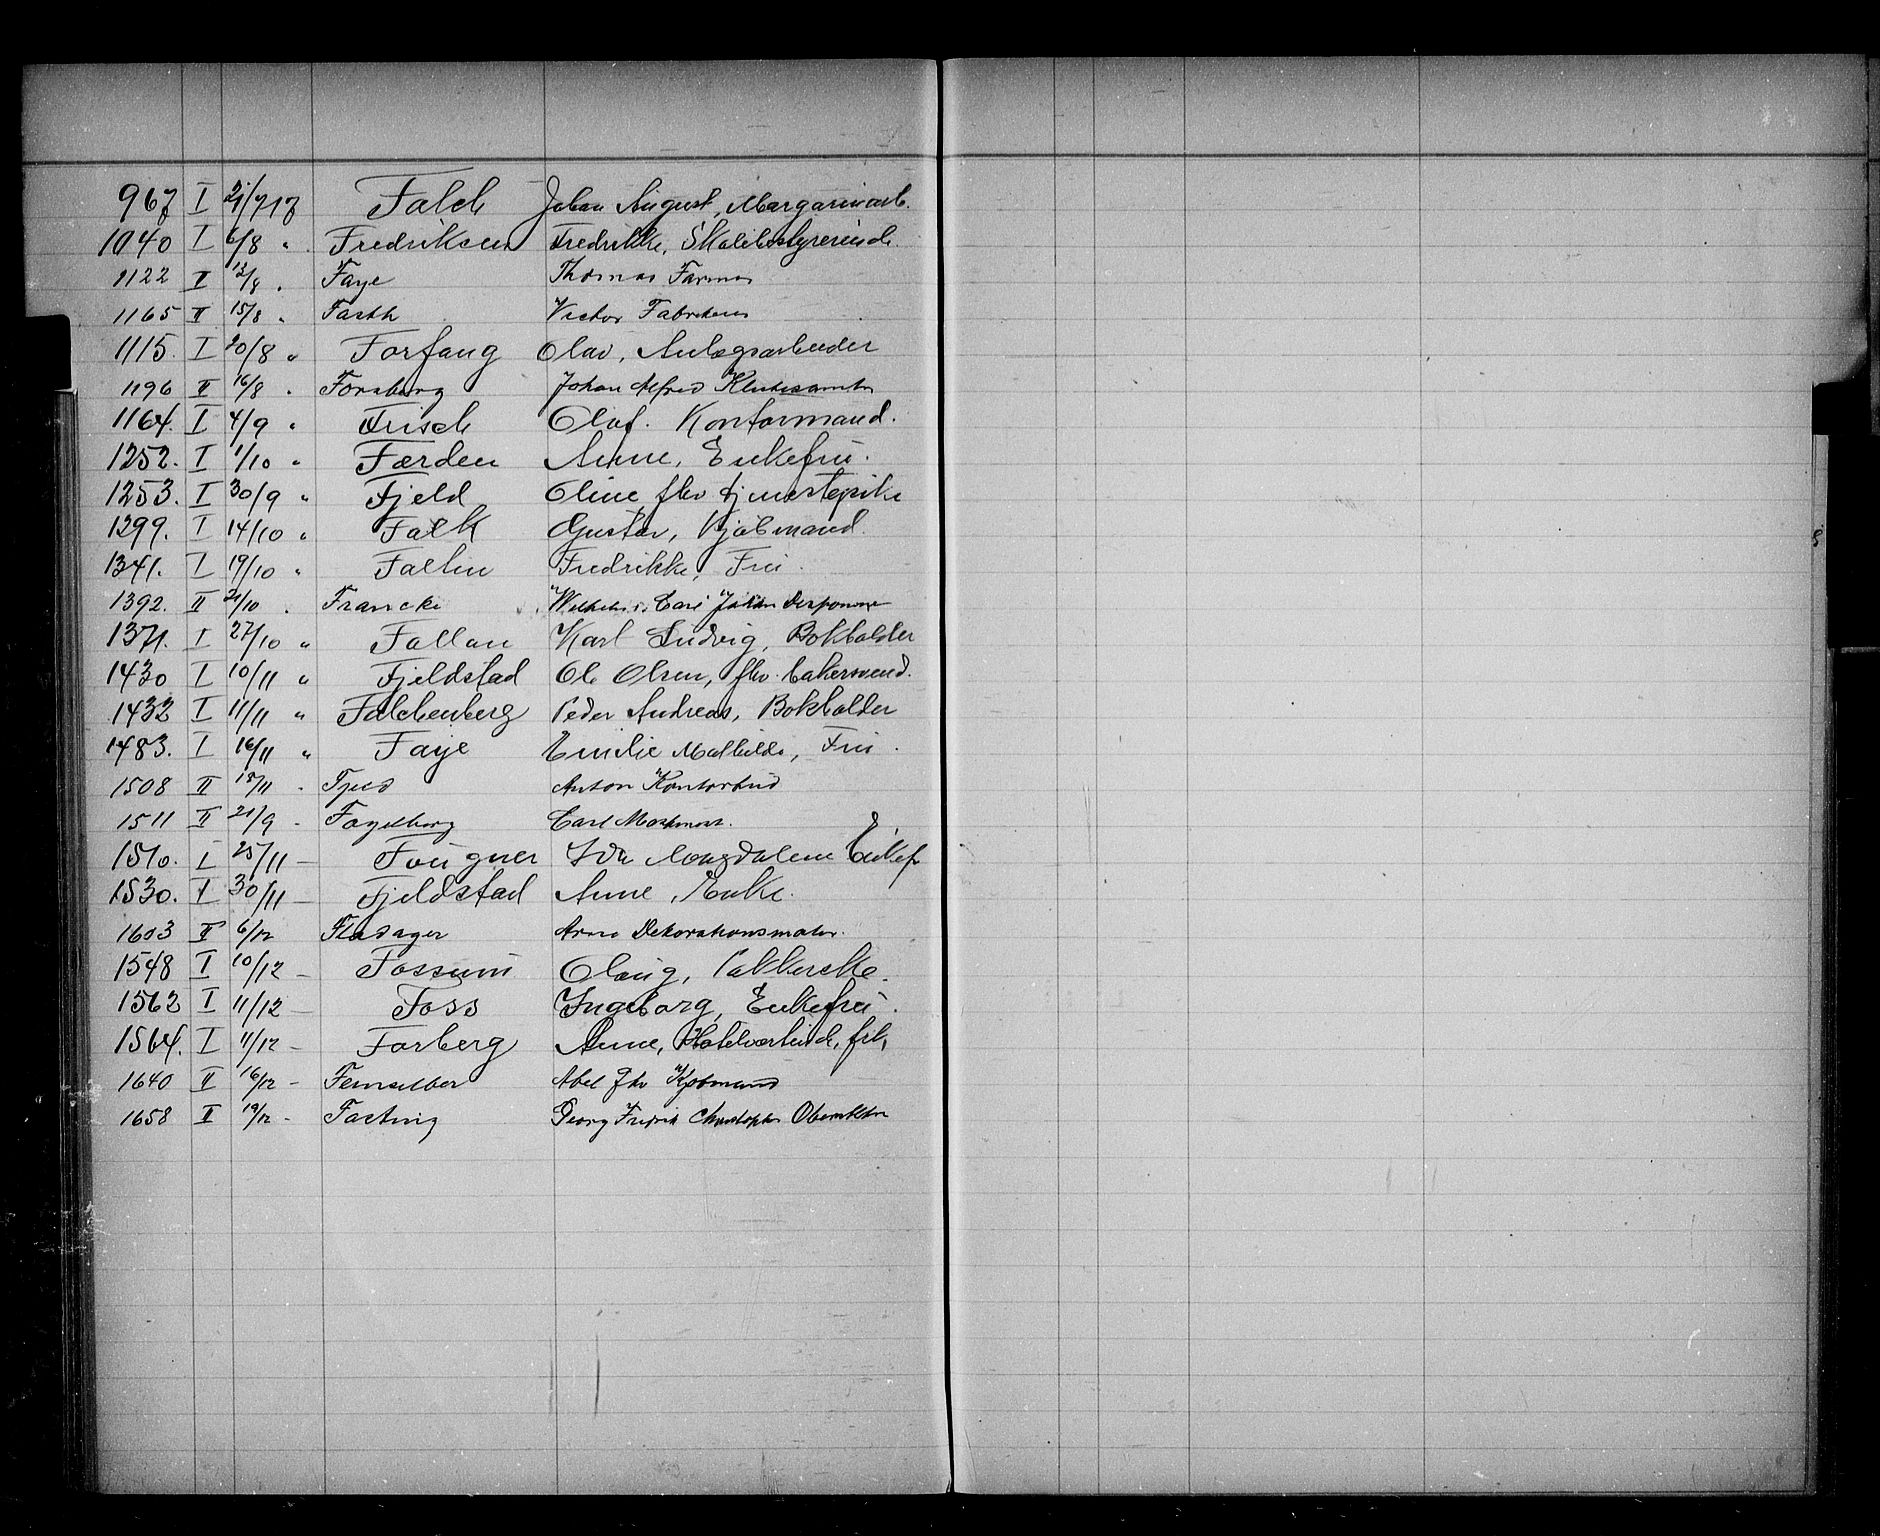 967 I 21/7 17 Falch Johan August, Margarinarb.
1040 I 6/8 " Fredriksen Fredrikke, Skolebestyrerinde.
1122 II 12/8 " Faye Thomas Farmer
1165 II 15/8 " Fasth Victor Fabrikeier
1115. I 20/8 " Forfang Olav, Anlægsarbeider
1196 II 16/8 " Forsberg Johan Alfred
1164. I 4/9 " Frisch Olaf. Kontormand.
1252. I 1/10 " Færden Anne, Enkefru.
1253. I 30/9 " Fjeld Oline fhv tjenestepike
1299. I 14/10 " Falk Gustav, Kjøbmand.
1341. I 19/10 " Fallen Fredrikke, Fru.
1392. II 21/10 " Francke Wilhelm Carl Johan Disponent
1371. I 27/10 " Fallan Karl Ludvig, Bokholder
1430 I 10/11 " Fjeldstad Ole Olsen, fhv. bakersvend.
1432 I 11/11 " Falchenberg Peder Andreas, Bokholder
1483. I 16/11 " Faye Emilie Mathilde, Fru.
1508 II 18/11 " Anton Kontorbud
1511 II 21/9 - Fagelborg Carl
1510. I 25/11 - Fougner Ida Magdalene Enkef
1530. I 30/11 - Fjeldstad Anne, Enke.
1603 II 6/12 Fladager Arne Dekorationsmaler.
1548 I 10/12 - Fossum Olaug, Pakkerske.
1562 I 11/12 - Foss Ingeborg, Enkefru.
1564. I 11/12 - Forberg Anne, Hotelværtinde, frk.
1640 II 16/12 - Abel fhv Kjøbmand
1658 II 19/12 - Fasting Georg Fredrik Christopher